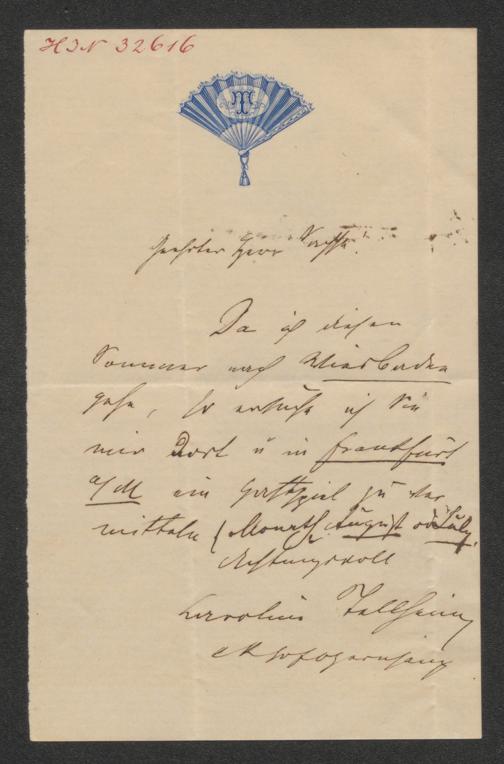 HIN 32616
T
Geehrter Herr Sachse!
Da ich diesen
Sommer nach Wiesbaden
gehe, so ersuche ich Sie
mir Dort u in Frankfurt
a/M ein Gastspiel zu ver
mitteln (Monath August od July.
Achtungsvoll
Karoline Tellheim